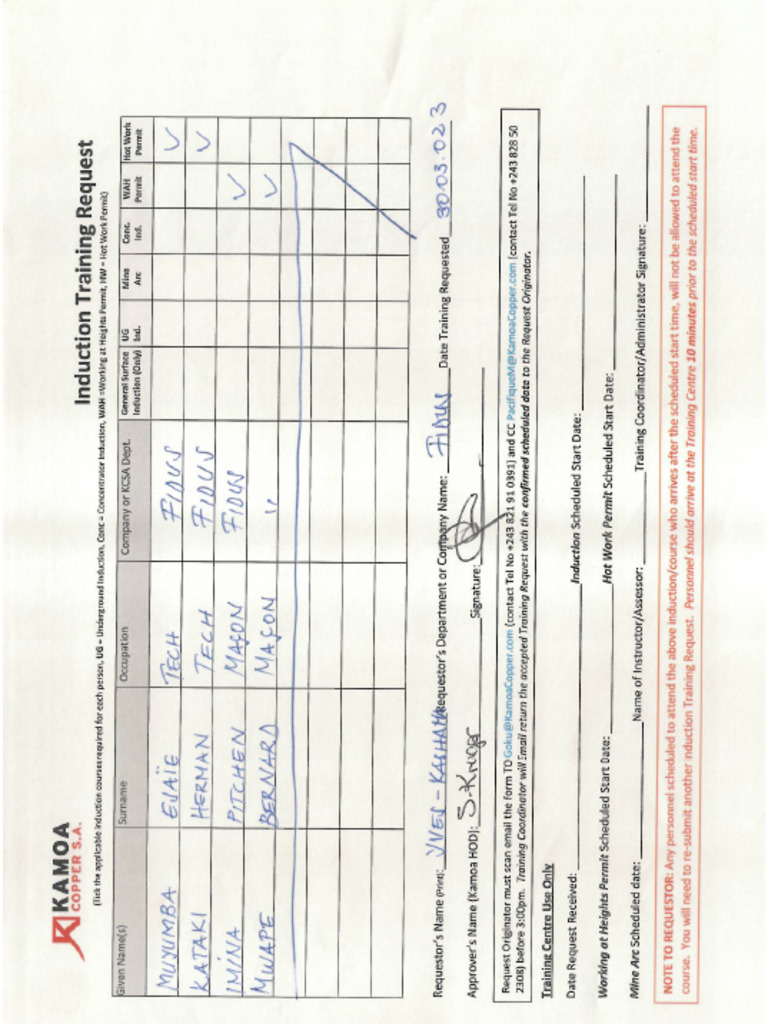 KAMOA
COPPER S.A.
Induction Training Request
(Tick the applicable induction courses required for each person, UG = Underground Induction, Conc = Concentrator Induction, WAH =Working at Heights Permit, HW = Hot Work Permit)
Given Name(s) Surname Occupation Company or KCSA Dept. General Surface Induction (Only) UG Ind. Mine Arc Conc. Ind. WAH Permit Hot Work Permit
MUJUMBA EJAÏE TECH FIDUS ✓
KATAKI HERMAN TECH FIDUS ✓
IMINA PITCHEN MAÇON FIDUS ✓
MWAPE BERNARD MAÇON " ✓
Requestor's Name (Print): YVES - KASHAMA Requestor's Department or Company Name: FIDUS Date Training Requested 30.03.023
Approver's Name (Kamoa HOD): S. Kruger Signature:
Request Originator must scan email the form TO Goku@KamoaCopper.com (contact Tel No +243 821 91 0391) and CC PacifiqueM@KamoaCopper.com (contact Tel No +243 828 50
2308) before 3:00pm. Training Coordinator will Email return the accepted Training Request with the confirmed scheduled date to the Request Originator.
Training Centre Use Only
Date Request Received: Induction Scheduled Start Date:
Working at Heights Permit Scheduled Start Date: Hot Work Permit Scheduled Start Date:
Mine Arc Scheduled date: Name of Instructor/Assessor: Training Coordinator/Administrator Signature:
NOTE TO REQUESTOR: Any personnel scheduled to attend the above induction/course who arrives after the scheduled start time, will not be allowed to attend the
course. You will need to re-submit another Induction Training Request. Personnel should arrive at the Training Centre 10 minutes prior to the scheduled start time.